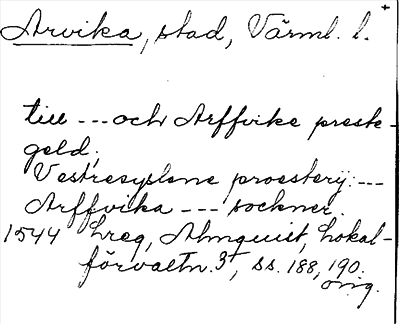 Arvika, stad, Värml. l.
till --- och Arffvike presk-
geld;
Vestresyslene proestery: ---
Arffvika --- sockner.
1544 Lreg, Almquist, Lokal-
förvaltn. 3, ss. 188, 190.
orig.